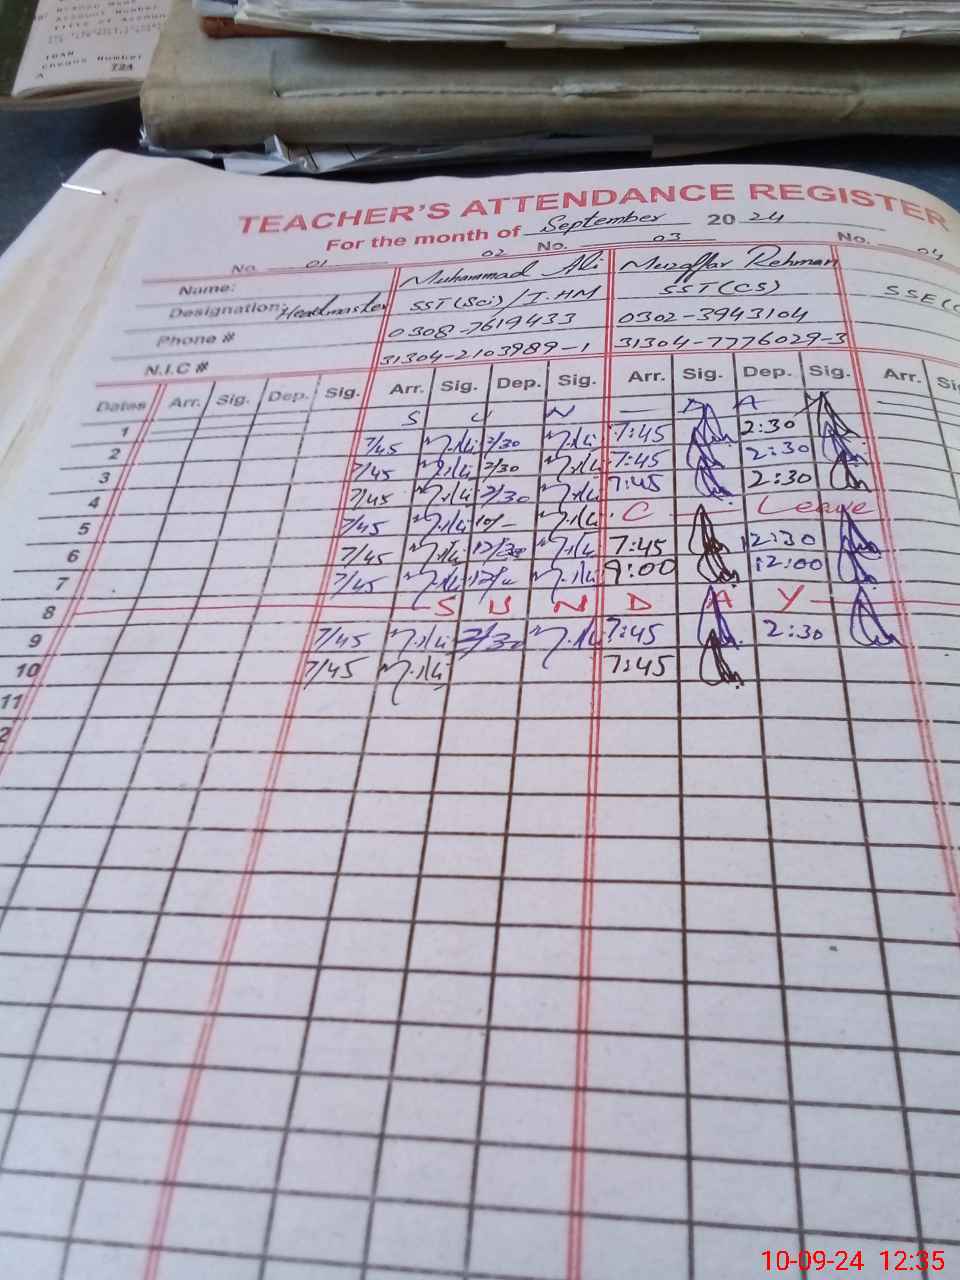 Account Number
Title of Account
IBAN
Cheque Number
TEACHER'S ATTENDANCE REGISTER
For the month of September 2024
No. 01 02 No. 03 No. 04
Name: Muhammad Ali Muzaffar Rehman
Designation: Headmaster SST(Sci)/I.HM SST(CS)
Phone # 0308-7619433 0302-3943104
N.I.C # 31304-2103989-1 31304-7776029-3
Dates Arr. Sig. Dep. Sig. Arr. Sig. Dep. Sig. Arr. Sig. Dep. Sig. Arr.
1 S U N — D A Y
2 7/45 M.Ali 2/30 M.Ali 7:45 2:30
3 7/45 M.Ali 2/30 M.Ali 7:45 2:30
4 7/45 M.Ali 2/30 M.Ali 7:45 2:30
5 7/45 M.Ali M.Ali C Leave
6 7/45 M.Ali 12/30 M.Ali 7:45 12:30
7 7/45 M.Ali M.Ali 9:00 12:00
8 S U N D A Y
9 7/45 M.Ali 2/30 M.Ali 7:45 2:30
10 7/45 M.Ali 7:45
11
10-09-24 12:35